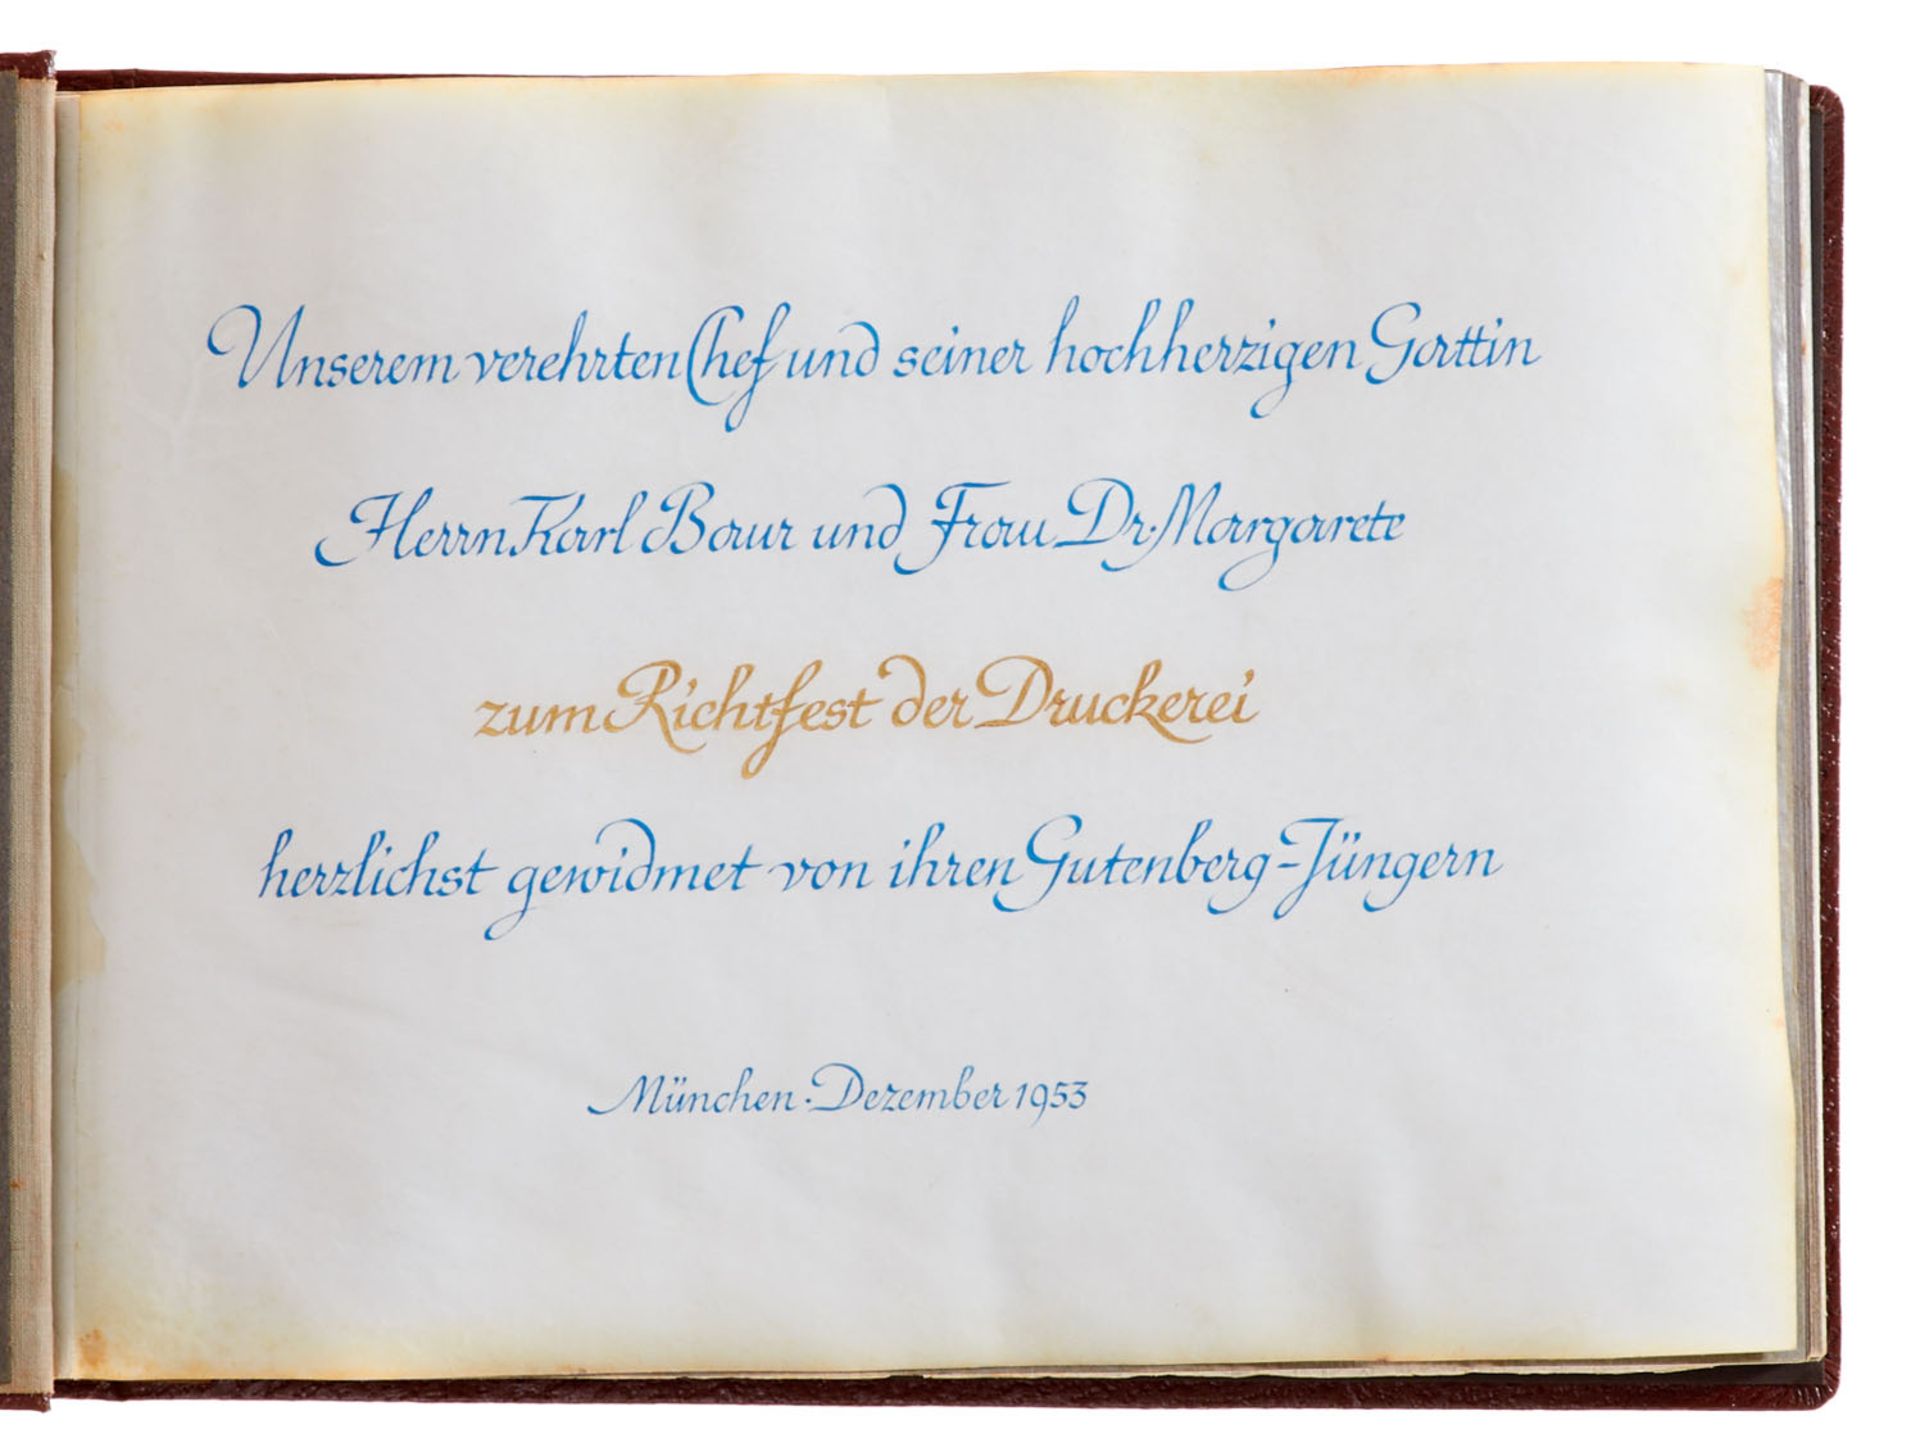 Unserem verehrten Chef und seiner hochherzigen Gattin
Herrn Karl Baur und Frau Dr. Margarete
zum Richtfest der Druckerei
herzlichst gewidmet von ihren Gutenberg-Jüngern
München · Dezember 1953